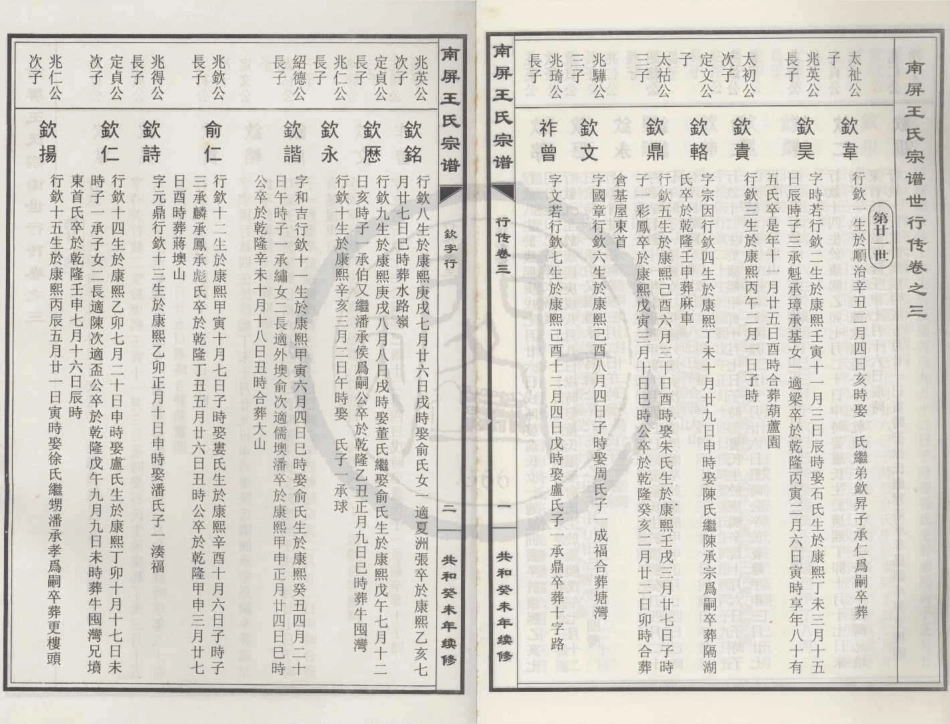 南屏王氏宗谱世行传卷之三
第廿一世
太祉公
子
欽韋
行欽一生於順治辛丑二月四日亥時娶 氏繼弟欽昇子承仁爲嗣卒葬
兆英公
長子
欽昊
字時若行欽二生於康熙壬寅十一月三日辰時娶石氏生於康熙丁未三月十五
日辰時子三承魁承璋承基女一適梁卒於乾隆丙寅二月六日寅時享年八十有
五氏卒是年十一月廿五日酉時合葬葫蘆園
太初公
次子
欽貴
行欽三生於康熙丙午二月一日子時
定文公
子
欽輅
字宗因行欽四生於康熙丁未十月廿九日申時娶陳氏繼陳承宗爲嗣卒葬隔湖
氏卒於乾隆壬申葬麻車
太祜公
三子
欽鼎
行欽五生於康熙己酉六月三十日酉時娶朱氏生於康熙壬戌三月廿七日子時
子一彩鳳卒於康熙戊寅三月十日巳時公卒於乾隆癸亥二月廿二日卯時合葬
倉基屋東首
兆驊公
三子
欽文
字國章行欽六生於康熙己酉八月四日子時娶周氏子一成福合葬塘灣
兆琦公
長子
祚曾
字文若行欽七生於康熙己酉十二月四日戌時娶盧氏子一承鼎卒葬十字路
南屏王氏宗谱
行传卷三
一
共和癸未年续修
南屏王氏宗谱
欽字行
二
共和癸未年续修
兆英公
次子
欽銘
行欽八生於康熙庚戌七月廿六日戌時娶俞氏女一適夏洲張卒於康熙乙亥七
月廿七日巳時葬水路嶺
定貞公
長子
欽歷
行欽九生於康熙庚戌八月八日戌時娶董氏繼娶俞氏生於康熙戊午七月十二
日亥時子一承伯又繼潘承侯爲嗣公卒於乾隆乙丑正月九日巳時葬牛囤灣
兆仁公
長子
欽永
行欽十生於康熙辛亥三月二日午時娶 氏子一承球
紹德公
長子
欽諧
字和吉行欽十一生於康熙甲寅六月四日巳時娶俞氏生於康熙癸丑四月二十
日午時子一承繡女二長適外墺俞次適儒墺潘卒於康熙甲申正月廿四日巳時
公卒於乾隆辛未十月十八日丑時合葬大山
兆欽公
長子
俞仁
行欽十二生於康熙甲寅十月七日子時娶婁氏生於康熙辛酉十月六日子時子
三承麟承鳳承彪氏卒於乾隆丁丑五月廿六日丑時公卒於乾隆甲申三月廿七
日酉時葬蔣墺山
兆得公
長子
欽詩
字元鼎行欽十三生於康熙乙卯正月十日申時娶潘氏子一湊福
定貞公
次子
欽仁
行欽十四生於康熙乙卯七月二十日申時娶盧氏生於康熙丁卯十月十七日未
時子一承子女二長適陳次適盃公卒於乾隆戊午九月九日未時葬牛囤灣兄墳
東首氏卒於乾隆壬申七月十六日辰時
兆仁公
次子
欽揚
行欽十五生於康熙丙辰五月廿一日寅時娶徐氏繼甥潘承孝爲嗣卒葬更樓頭